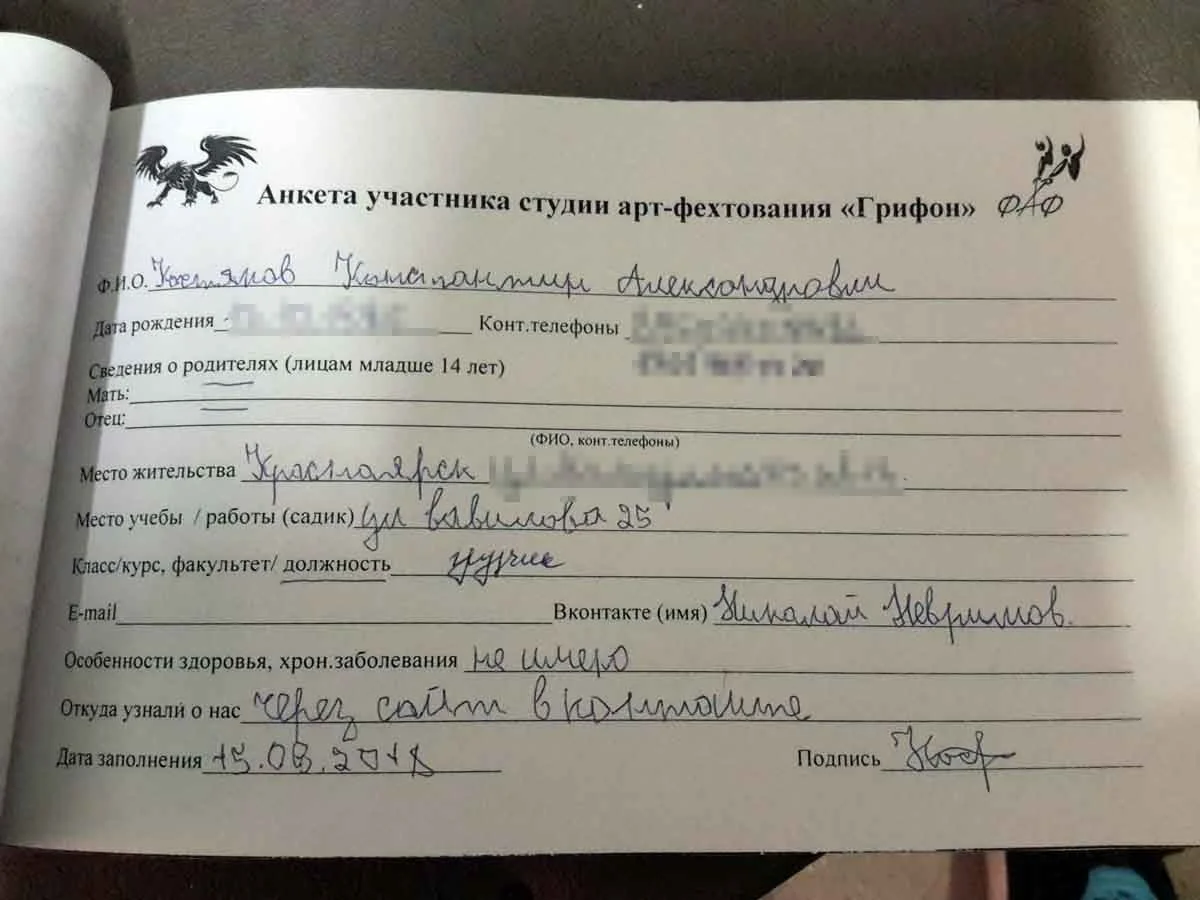 Анкета участника студии арт-фехтования «Грифон» ФАФ
Ф.И.О. Константин Александрович
Дата рождения Конт.телефоны
Сведения о родителях (лицам младше 14 лет)
Мать:
Отец:
(ФИО, конт.телефоны)
Место жительства Красноярск
Место учебы / работы (садик) ул вавилова 25
Класс/курс, факультет/ должность грузчик
E-mail Вконтакте (имя) Николай Невримов.
Особенности здоровья, хрон.заболевания не имею
Откуда узнали о нас через сайт вконтакте
Дата заполнения 15.08.2018 Подпись